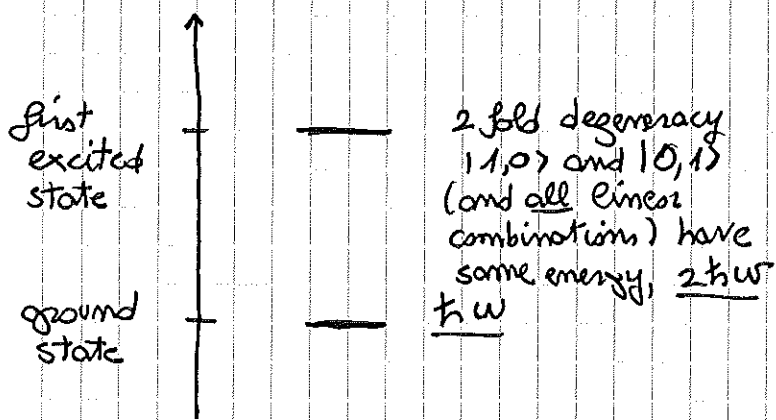 first
excited
state
2 fold degeneracy
|1,0> and |0,1>
(and all linear
combinations) have
same energy, 2ħω
ground
state
ħω